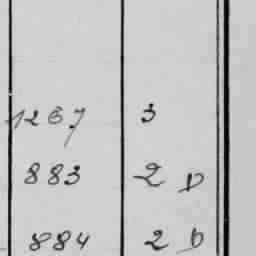 1267 3
883 2 D
884 2 b